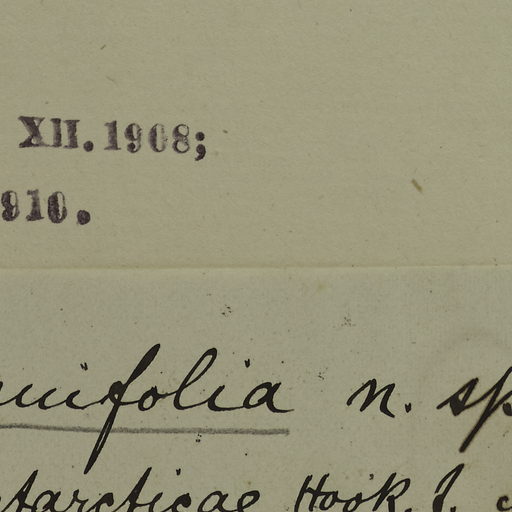 XII.1908;
910.
nuifolia n. sp
ntarcticae Hook. f.